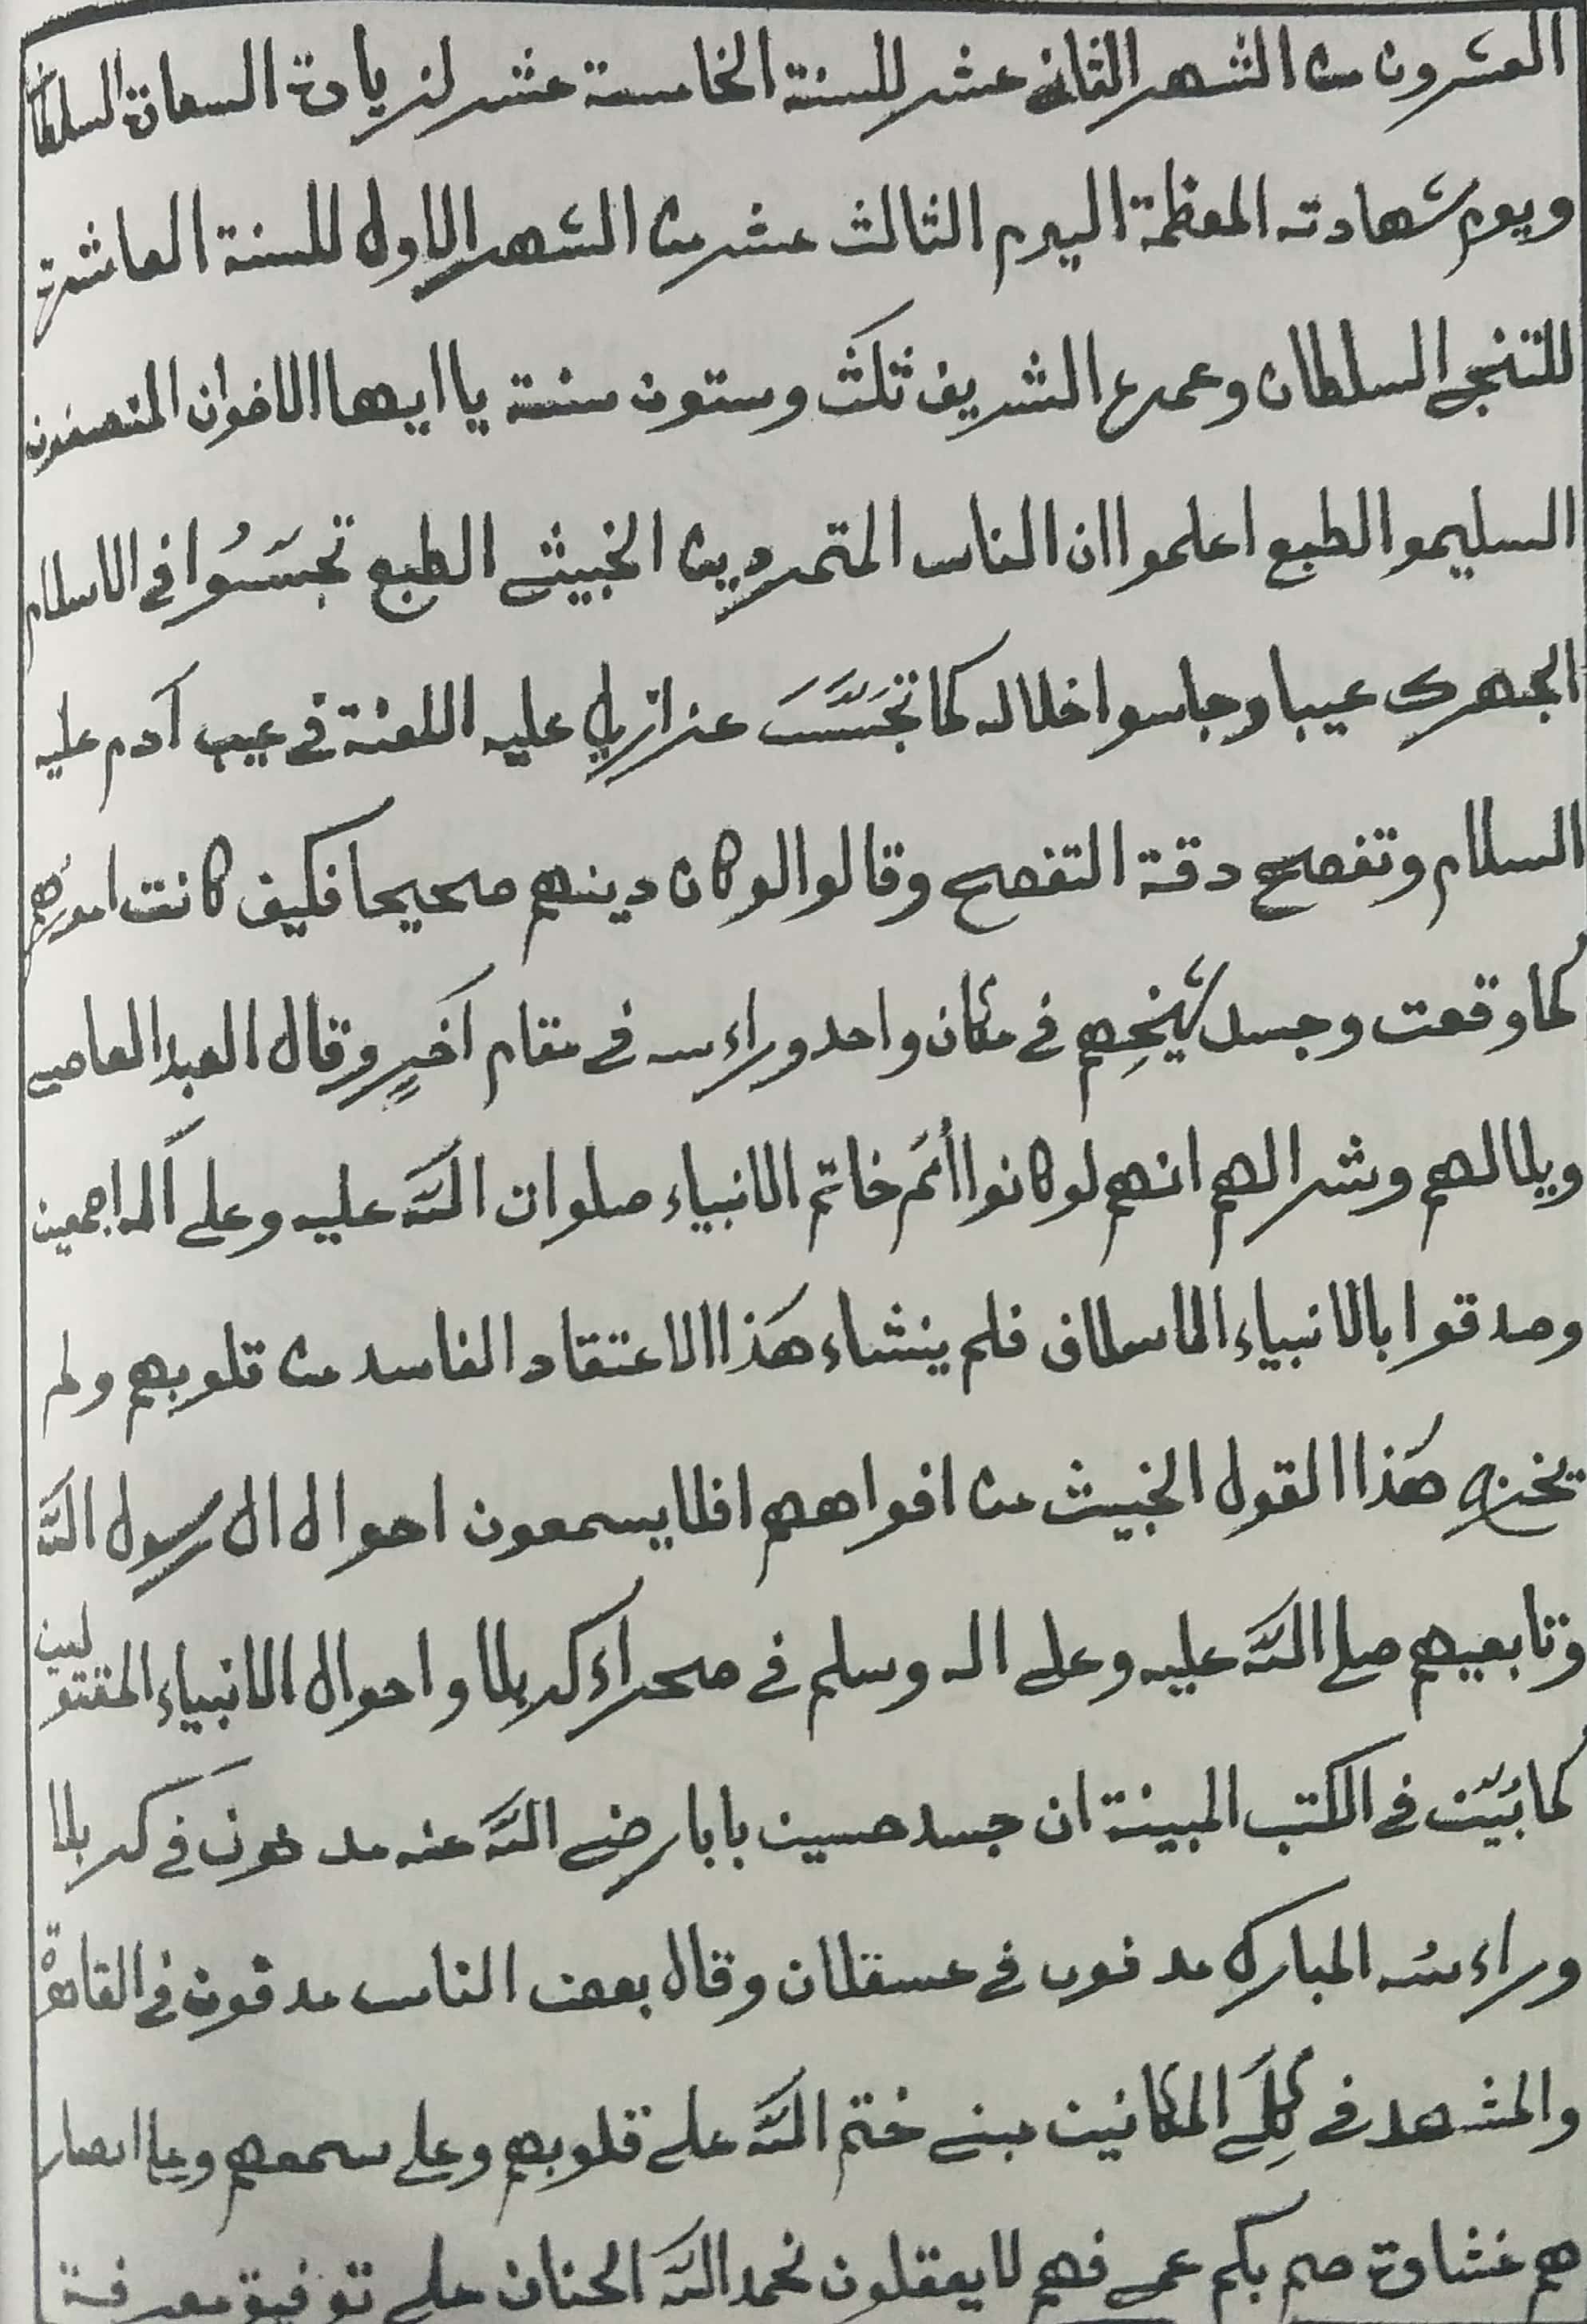 العشرون من الشهر الثاني عشر للسنة الخامسة عشر لزيادة السعادة السلطان
ويوم شهادته المعظمة اليوم الثالث عشر من الشهر الاول للسنة العاشرة
للتنجي السلطان وعمره الشريف ثلث وستون سنة يا ايها الاخوان المنصفون
السليموا الطبع اعلموا ان الناس المتمردين الخبيثي الطبع تجسَسُوا في الاسلام
الجهرى عيبا وجاسوا خلاله كما تجَسَّسَ عزازيل عليه اللعنة في عيب آدم عليه
السلام وتفصح دقة التفصح وقالوا لو كان دينهم صحيحا فكيف كانت امورهم
كما وقعت وجسد شيخِهم في مكان واحد وراءسه في مقام آخرٍ وقال العبد العاصي
ويلا لهم وشرا لهم انهم لو كانوا أمَم خاتم الانبياء صلوات الله عليه وعلى آله اجمعين
وصدقوا بالانبياء الاسلاف فلم ينشاء هَذا الاعتقاد الفاسد من قلوبهم ولم
يخرج هَذا القول الخبيث من افواههم افلا يسمعون احوال ال رسول الله
وتابعيهم صلى الله عليه وعلى اله وسلم في صحراء كربلا واحوال الانبياء المقتولين
كما بُيّنت في الكتب المبينة ان جسد حسين بابا رضي الله عنه مدفون في كربلا
وراءسُه المبارك مدفون في عسقلان وقال بعض الناس مدفون في القاهرة
والمشهد في كِلَي المكانين مبني ختم الله على قلوبهم وعلى سمعهم وعلى ابصار
هم غشاوة صم بكم عمي فهم لا يعقلون نحمد الله الحنان على توفيق معرفة